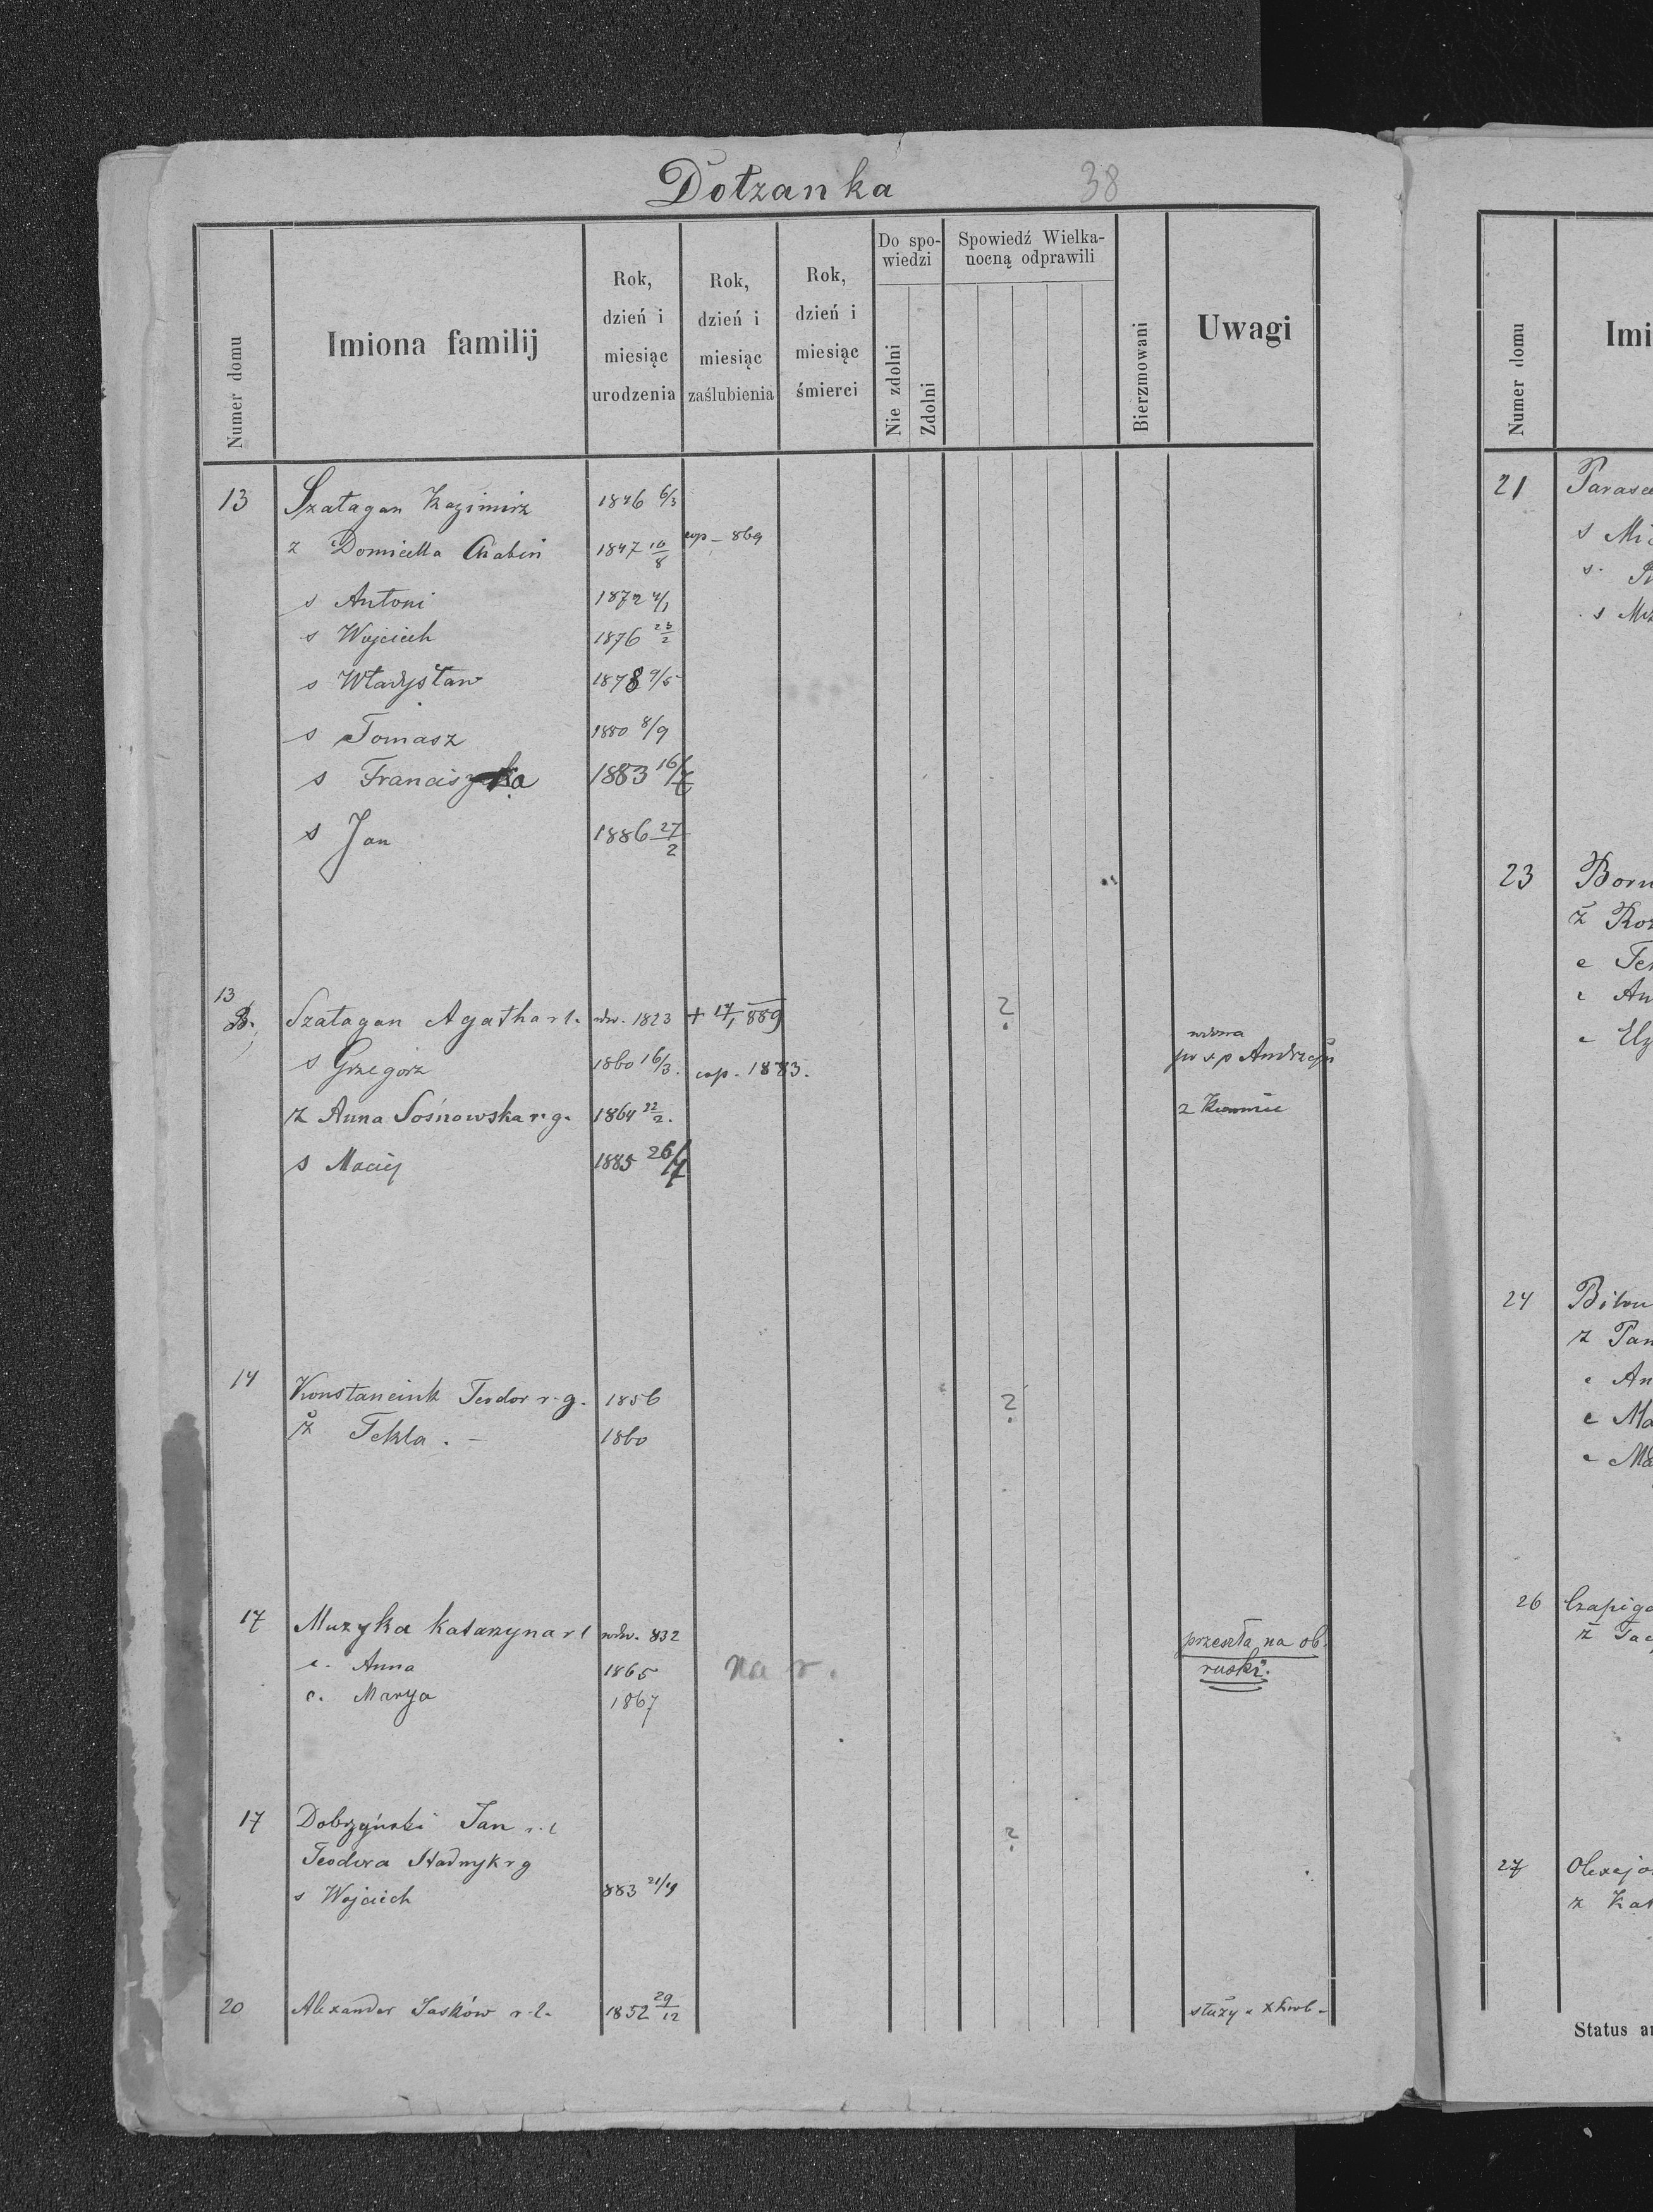 Dołzanka 38
Numer domu
Imiona familij
Rok, dzień i miesiąc urodzenia
Rok, dzień i miesiąc zaślubienia
Rok, dzień i miesiąc śmierci
Do spowiedzi
Nie zdolni
Zdolni
Spowiedź Wielkanocną odprawili
Bierzmowani
Uwagi
13 Szałagan Kazimirz 1846 6/3
z Domicella 1847 10/8 cop - 869
s Antoni 1872 4/1
s Wojciech 1876 23/2
s Władysław 1878 9/5
s Tomasz 1880 8/9
s Franciszka 1883 16/7
s Jan 1886 27/2
13
B. Szałagan Agatha r l. wdw. 1823 + 17/1 889 ? wdowa
s Grzegórz 1860 16/3. cop. 1883. po ś p Andrzeju
z Anna Sośnowska r. g. 1864 22/2. z
s Maciej 1885 26/7
14 Konstanciuk Teodor r. g. 1856 ?
ż Tekla. - 1860
17 Muzyka Katarzyna r l wdw. 832 przeszła na ob.
c. Anna 1865 na r. ruski.
c. Marya 1867
17 Dobrzyński Jan r. l
Teodora Hadnyk r g ?
s Wojciech 883 21/4
20 Alexander Jasków r. l. 1852 29/12 służy u
Numer domu
Imi
21 Parasc
s Mi
s.
s
23 Born
ż Ro
c Te
c An
c Elz
24
ż Pan
c An
c Ma
c Ma
26 Czapiga
ż
27 Olexejo
ż Kat
Status a